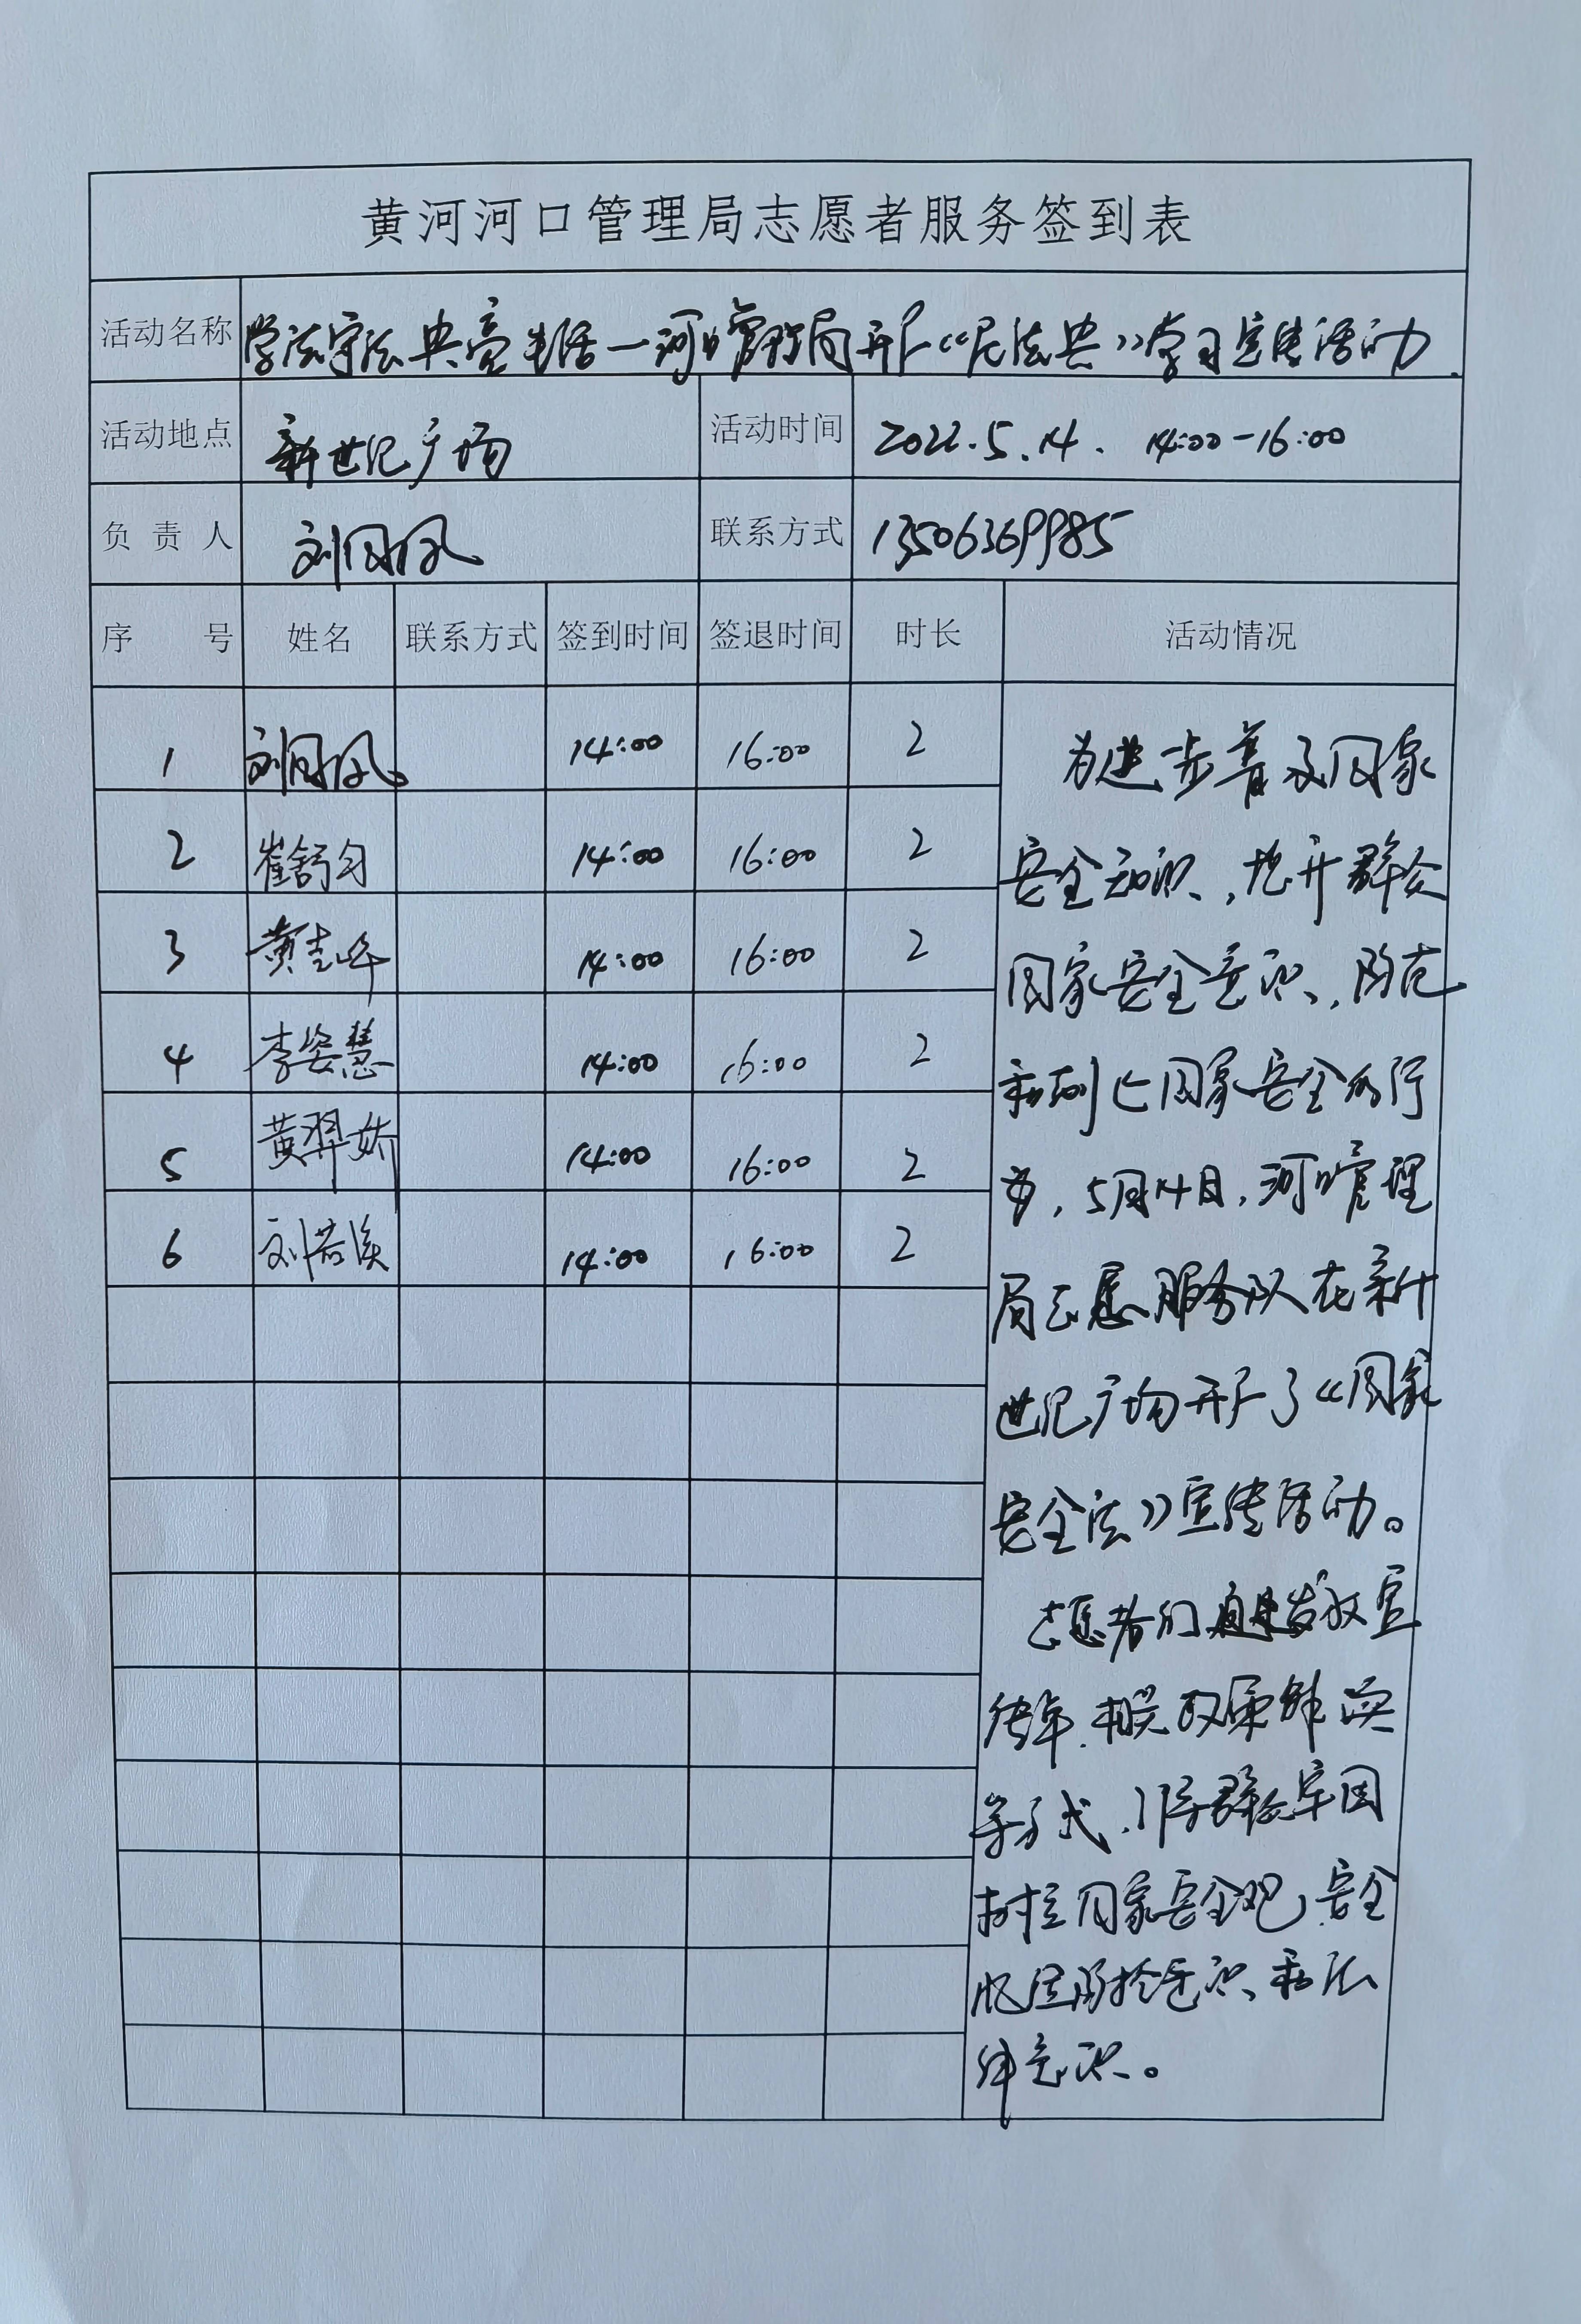 黄河河口管理局志愿者服务签到表
活动名称 学法守法 典亮生活一河口管理局开展《民法典》学习宣传活动
活动地点 新世纪广场 活动时间 2022.5.14. 14:00-16:00
负责人 刘同凤 联系方式 13506369985
序号 姓名 联系方式 签到时间 签退时间 时长 活动情况
1 刘同凤 14:00 16:00 2
2 崔舒匀 14:00 16:00 2
3 黄 14:00 16:00 2
4 李姿慧 14:00 16:00 2
5 黄羿娇 14:00 16:00 2
6 刘若溪 14:00 16:00 2
为进步普及国家
安全知识,提升群众
国家安全意识,防范
和制止国家安全的行
为,5月14日,河口管理
局志愿服务队在新什
世纪广场开展了《国家
安全法》宣传活动。
志愿者们通过发放宣
传单.相关政策解读
等方式,引导群众牢固
树立国家安全观,安全
防护意识、和法
律意识。